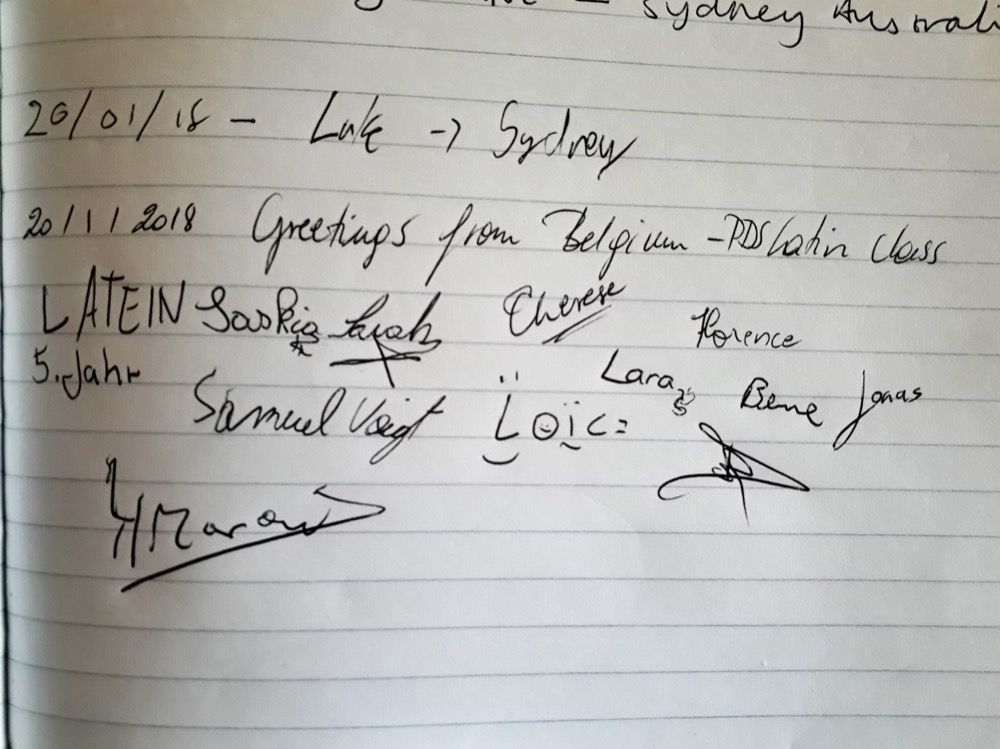 Sydney Australi
20/01/18 - Luke -> Sydney
20/11/2018 Greetings from Belgium - PDS Latin class
LATEIN Saskia Sarah Therese Florence
5. Jahr Samuel Voigt Loïc Lara Bene Jonas